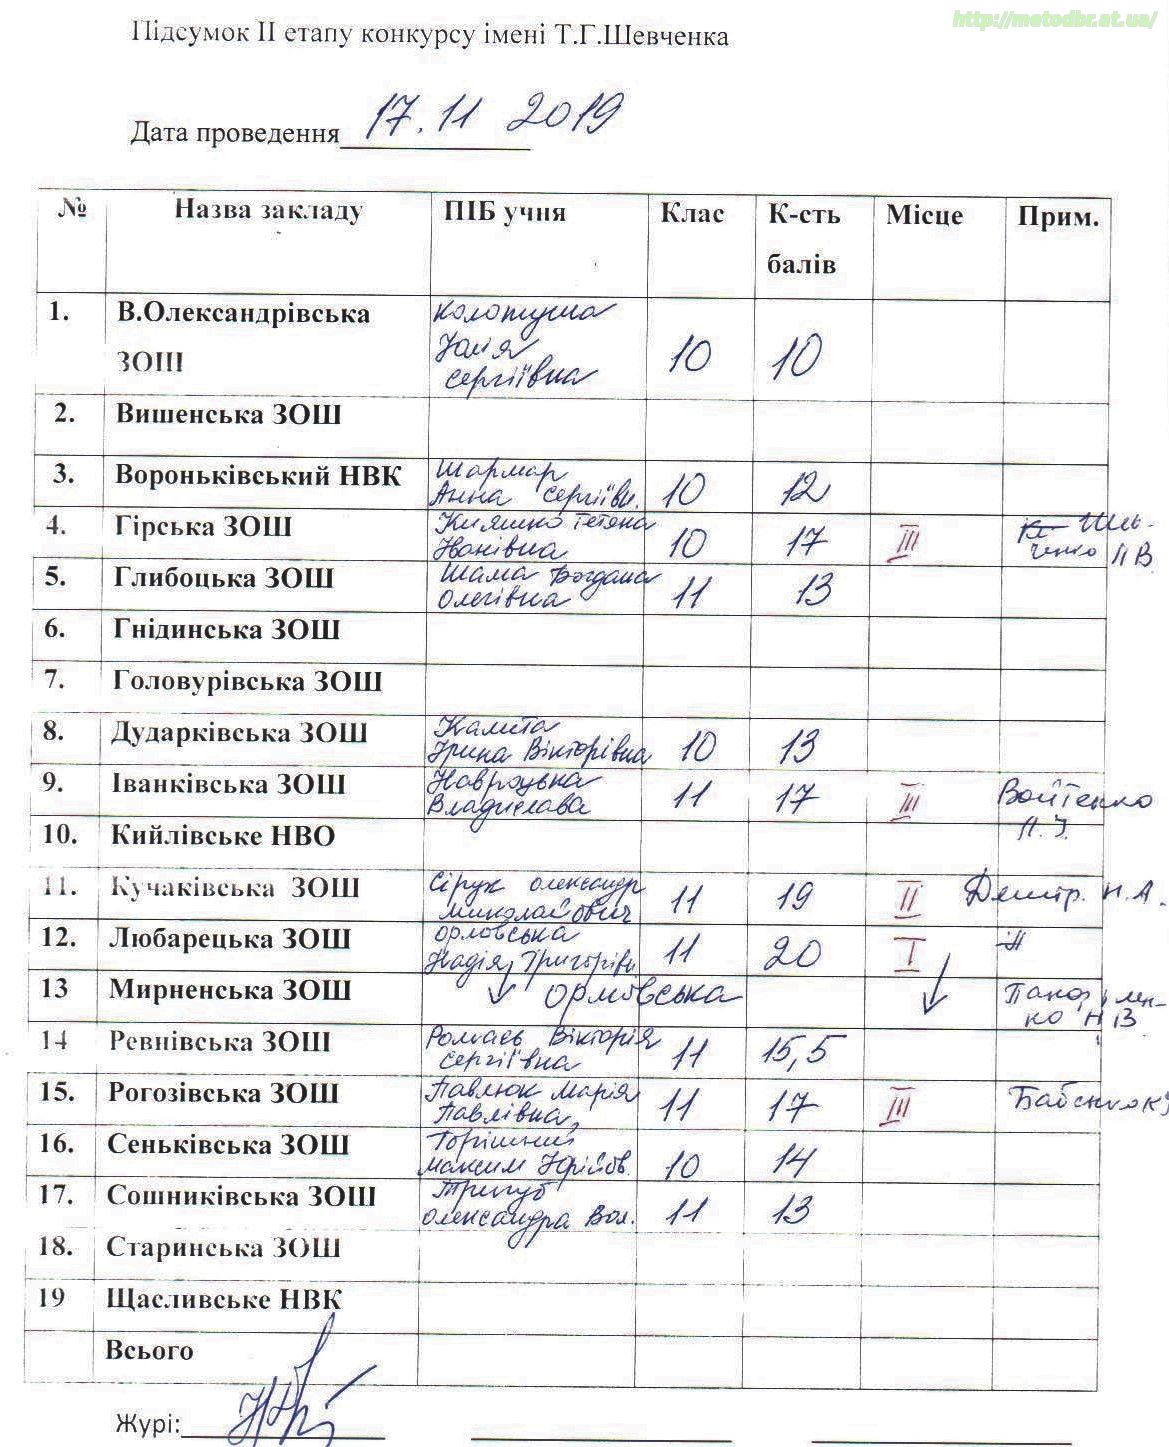 http://metodbr.at.ua/
Підсумок ІІ етапу конкурсу імені Т.Г.Шевченка
Дата проведення 17.11 2019
№ Назва закладу ПІБ учня Клас К-сть балів Місце Прим.
1. В.Олександрівська ЗОШ Юлія Сергіївна 10 10
2. Вишенська ЗОШ
3. Вороньківський НВК Шармар Анна Сергіївн. 10 12
4. Гірська ЗОШ Кияшко Тетяна Іванівна 10 17 ІІІ
5. Глибоцька ЗОШ Шама Богдана Олегівна 11 13
6. Гнідинська ЗОШ
7. Головурівська ЗОШ
8. Дударківська ЗОШ Калита Ірина Вікторівна 10 13
9. Іванківська ЗОШ Навроцька Владислава 11 17 ІІІ Войтенко
10. Кийлівське НВО
11. Кучаківська ЗОШ Сірук Олександр Миколайович 11 19 ІІ Дмитр. Н.А.
12. Любарецька ЗОШ Орловська Надія Григорівн 11 20 І
13 Мирненська ЗОШ Орловська
14 Ревнівська ЗОШ Вікторія Сергіївна 11 15,5
15. Рогозівська ЗОШ Павлюк Марія Павлівна 11 17 ІІІ
16. Сеньківська ЗОШ Максим Юрійов. 10 14
17. Сошниківська ЗОШ Тригуб Олександра Вол. 11 13
18. Старинська ЗОШ
19 Щасливське НВК
Всього
Журі: